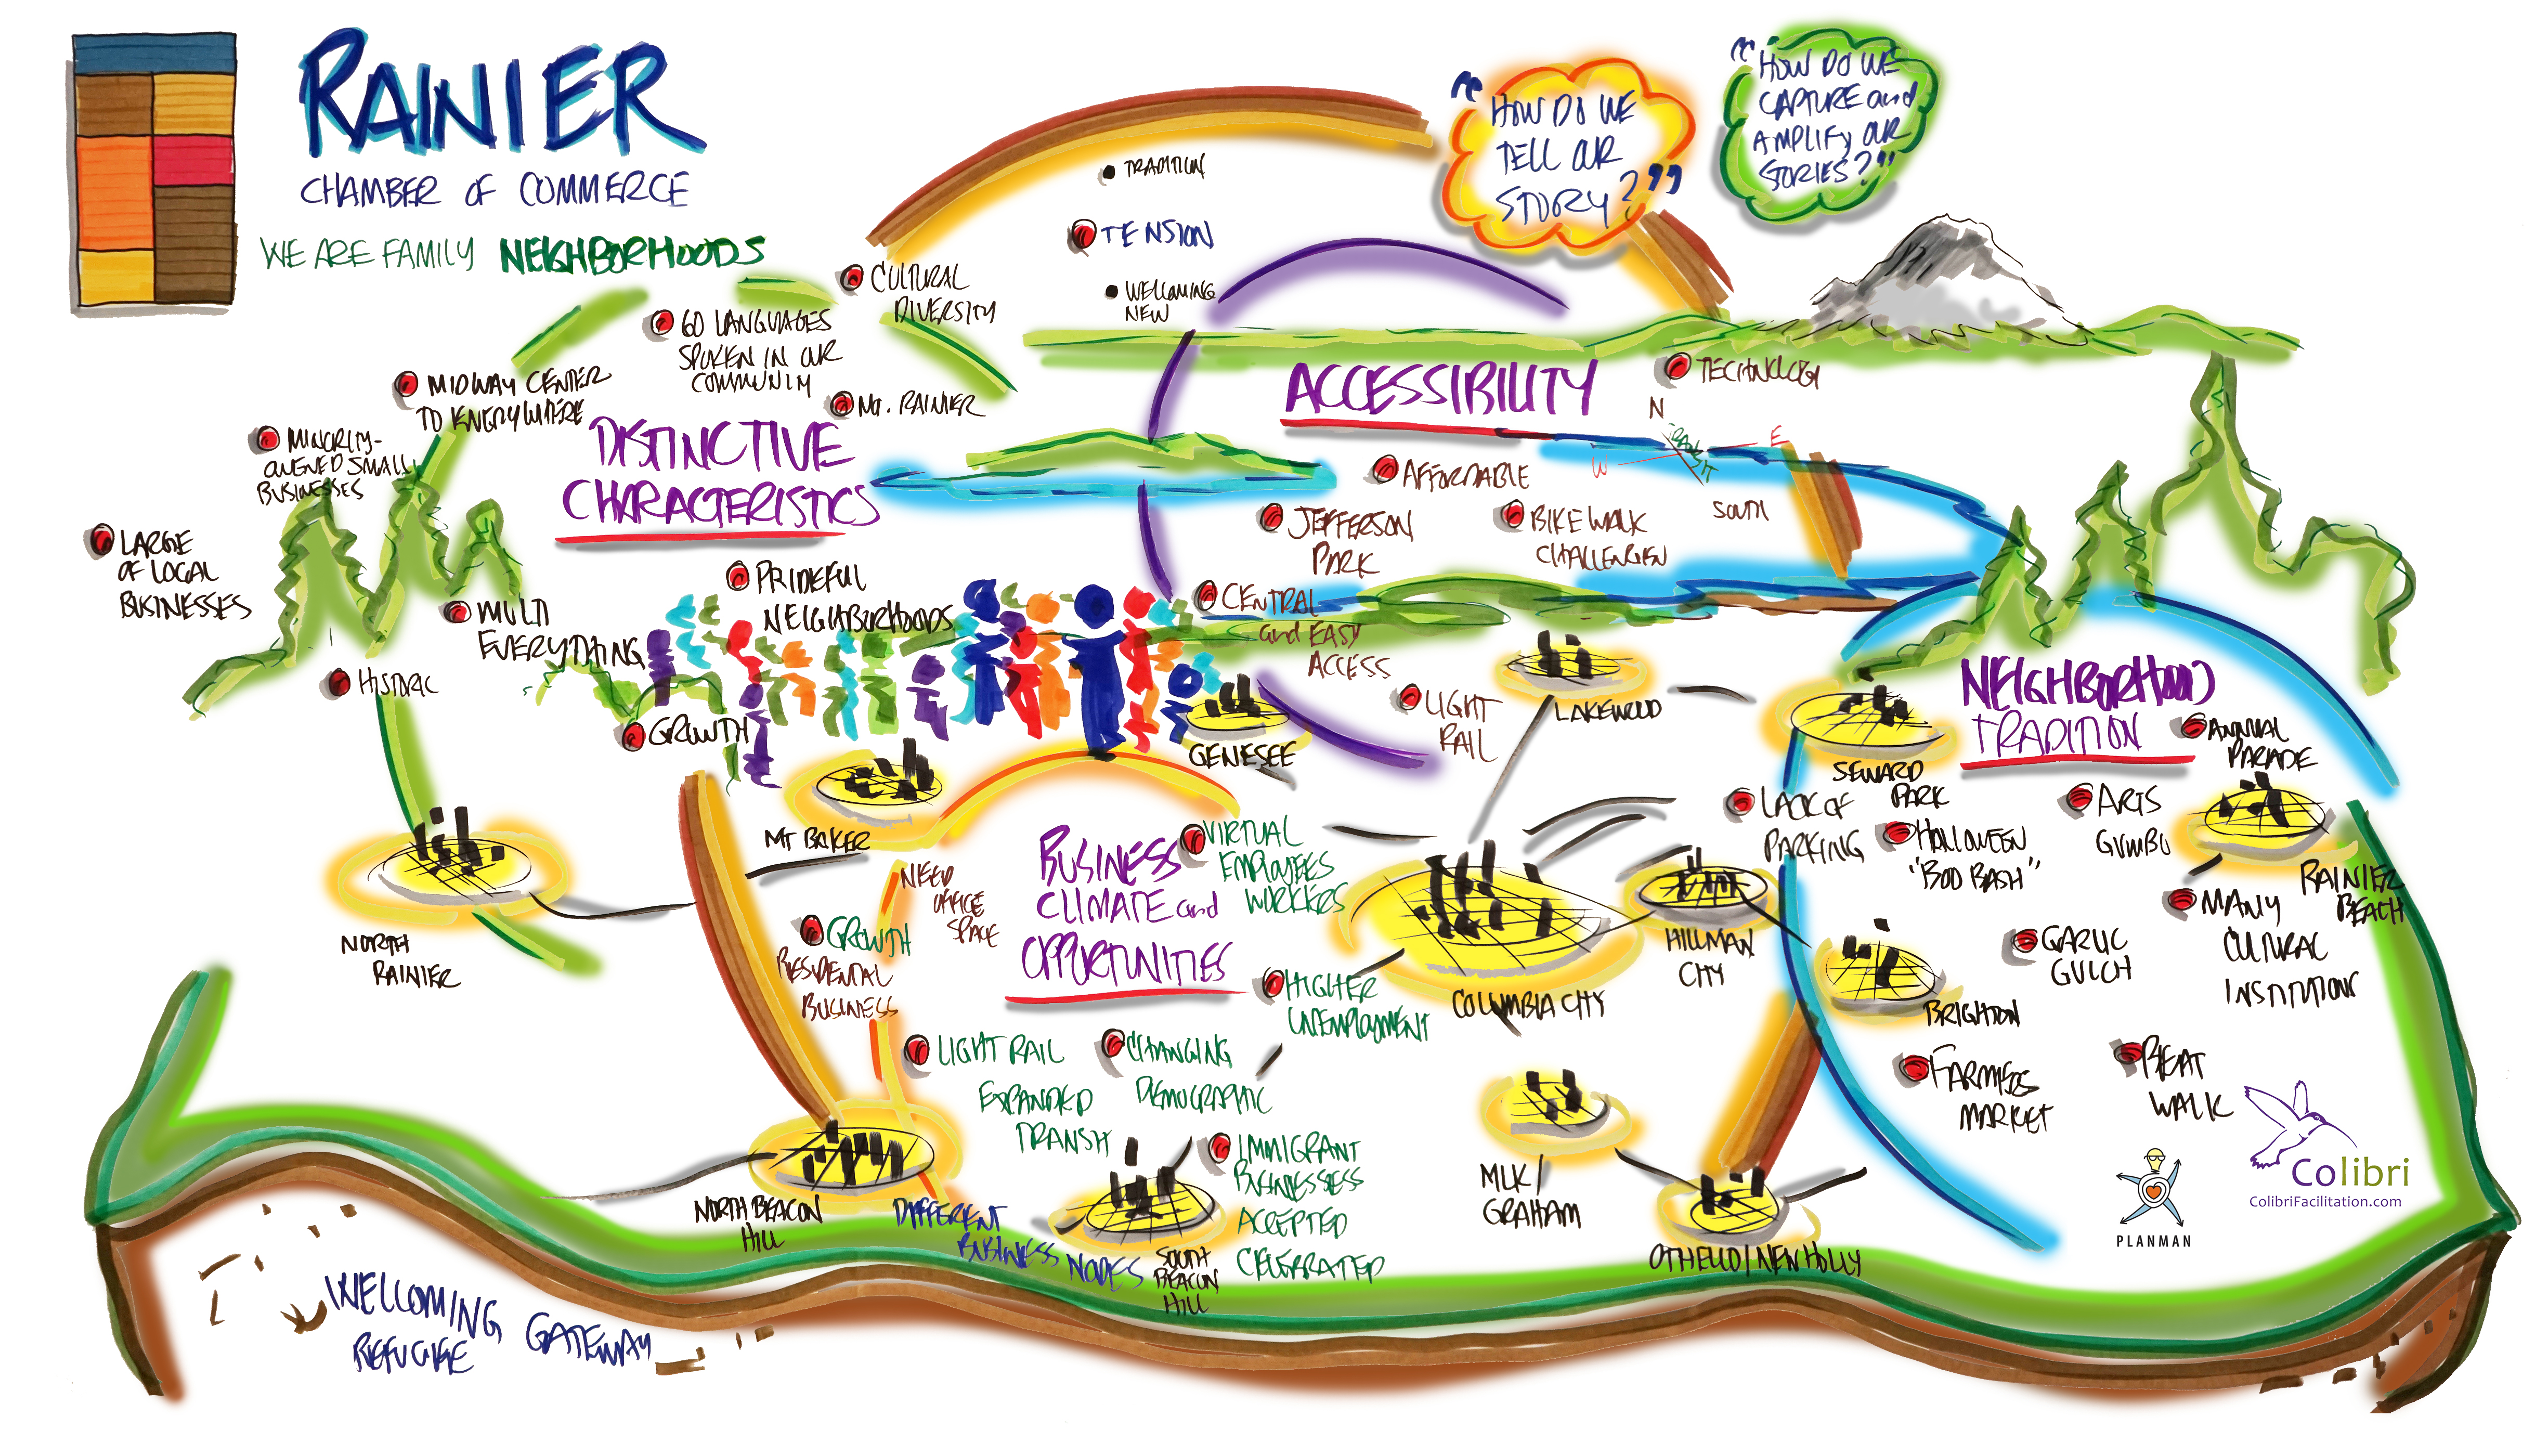 RAINIER
CHAMBER OF COMMERCE
WE ARE FAMILY NEIGHBORHOODS
"HOW DO WE
TELL OUR
STORY?"
"HOW DO WE
CAPTURE and
AMPLIFY OUR
STORIES?"
TRADITION
TENSION
WELCOMING
NEW
CULTURAL
DIVERSITY
60 LANGUAGES
SPOKEN IN OUR
COMMUNITY
MIDWAY CENTER
TO EVERYWHERE
MT. RAINIER
MINORITY-
OWENED SMALL
BUSINESSES
DISTINCTIVE
CHARACTERISTICS
LARGE
OF LOCAL
BUSINESSES
PRIDEFUL
NEIGHBORHOODS
MULTI
EVERYTHING
HISTORIC
GROWTH
ACCESSIBILITY
TECHNOLOGY
N
E
W
TRANSIT
SOUTH
AFFORDABLE
JEFFERSON
PARK
BIKE WALK
CHALLENGEN
CENTRAL
and EASY
ACCESS
LIGHT
RAIL
LAKEWOOD
GENESEE
SEWARD
PARK
LACK OF
PARKING
NEIGHBORHOOD
TRADITION
ANNUAL
PARADE
ARTS
GUMBO
HALLOWEEN
"BOO BASH"
RAINIER
BEACH
MANY
CULTURAL
INSTITUTIONS
GARLIC
GULCH
BRIGHTON
FARMERS
MARKET
BEAT
WALK
MT BAKER
NORTH
RAINIER
BUSINESS
CLIMATE and
OPPORTUNITIES
VIRTUAL
EMPLOYEES
WORKERS
NEED
OFFICE
SPACE
GROWTH
RESIDENTAL
BUSINESS
HIGHER
UNEMPLOYMENT
COLUMBIA CITY
HILLMAN
CITY
LIGHT RAIL
EXPANDED
TRANSIT
CHANGING
DEMOGRAPHIC
IMMIGRANT
BUSINESSESS
ACCEPTED
CELEBRATED
MLK/
GRAHAM
OTHELLO/NEW HOLLY
NORTH BEACON
HILL
DIFFERENT
BUSINESS NODES
SOUTH
BEACON
HILL
WELCOMING GATEWAY
REFUGEE
PLANMAN
Colibri
ColibriFacilitation.com